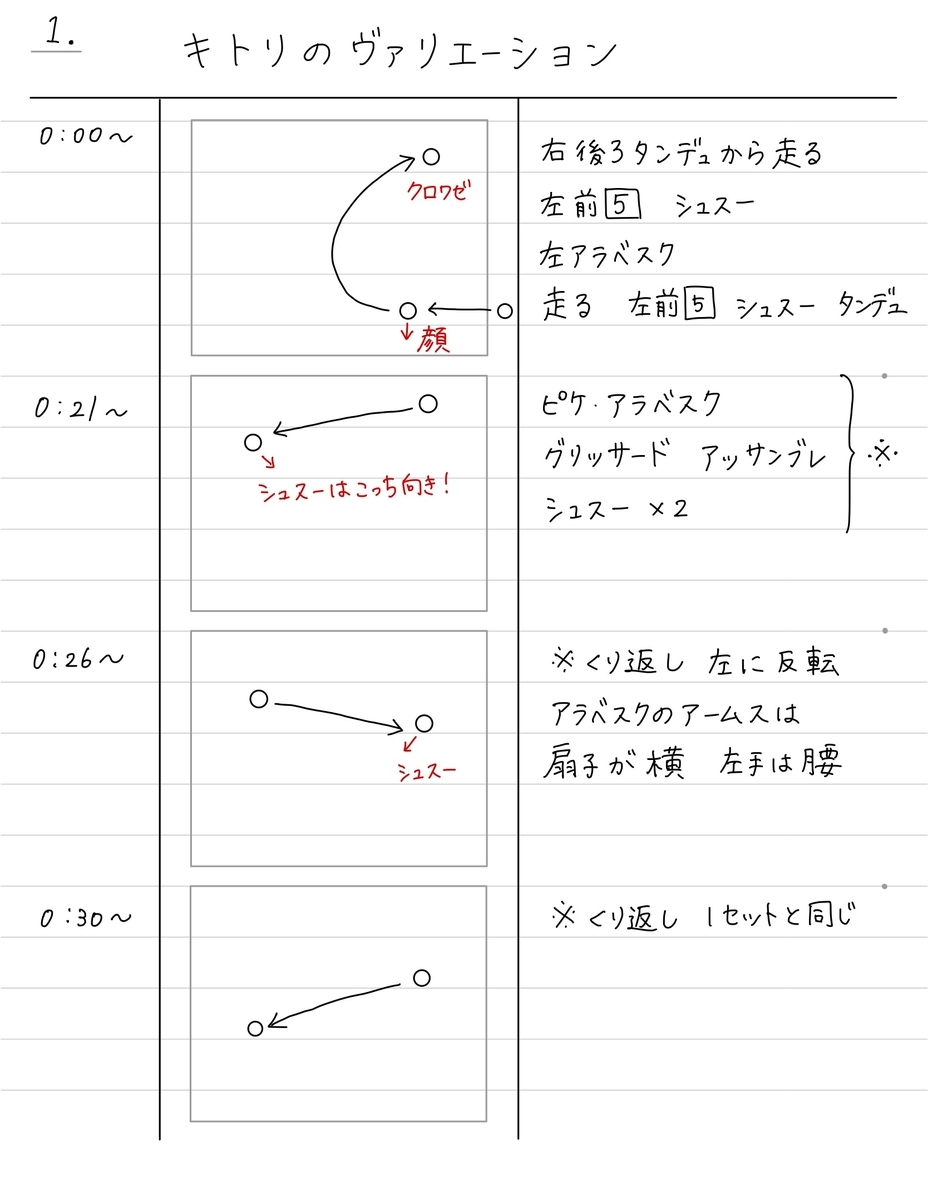 1.
キトリのヴァリエーション
0:00～
クロワゼ
顔
右後ろタンデュから走る
左前5 シュスー
左アラベスク
走る 左前5 シュスー タンデュ
0:21～
シュスーはこっち向き!
ピケ・アラベスク
グリッサード アッサンブレ
シュスー ×2
※
0:26～
シュスー
※くり返し 左に反転
アラベスクのアームスは
扇子が横 左手は腰
0:30～
※くり返し 1セットと同じ